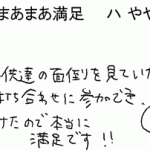 まあまあ満足 ハ やや
供達の面倒りを見てい
ち合わせに参加でき.
けたので本当に
満足です!!